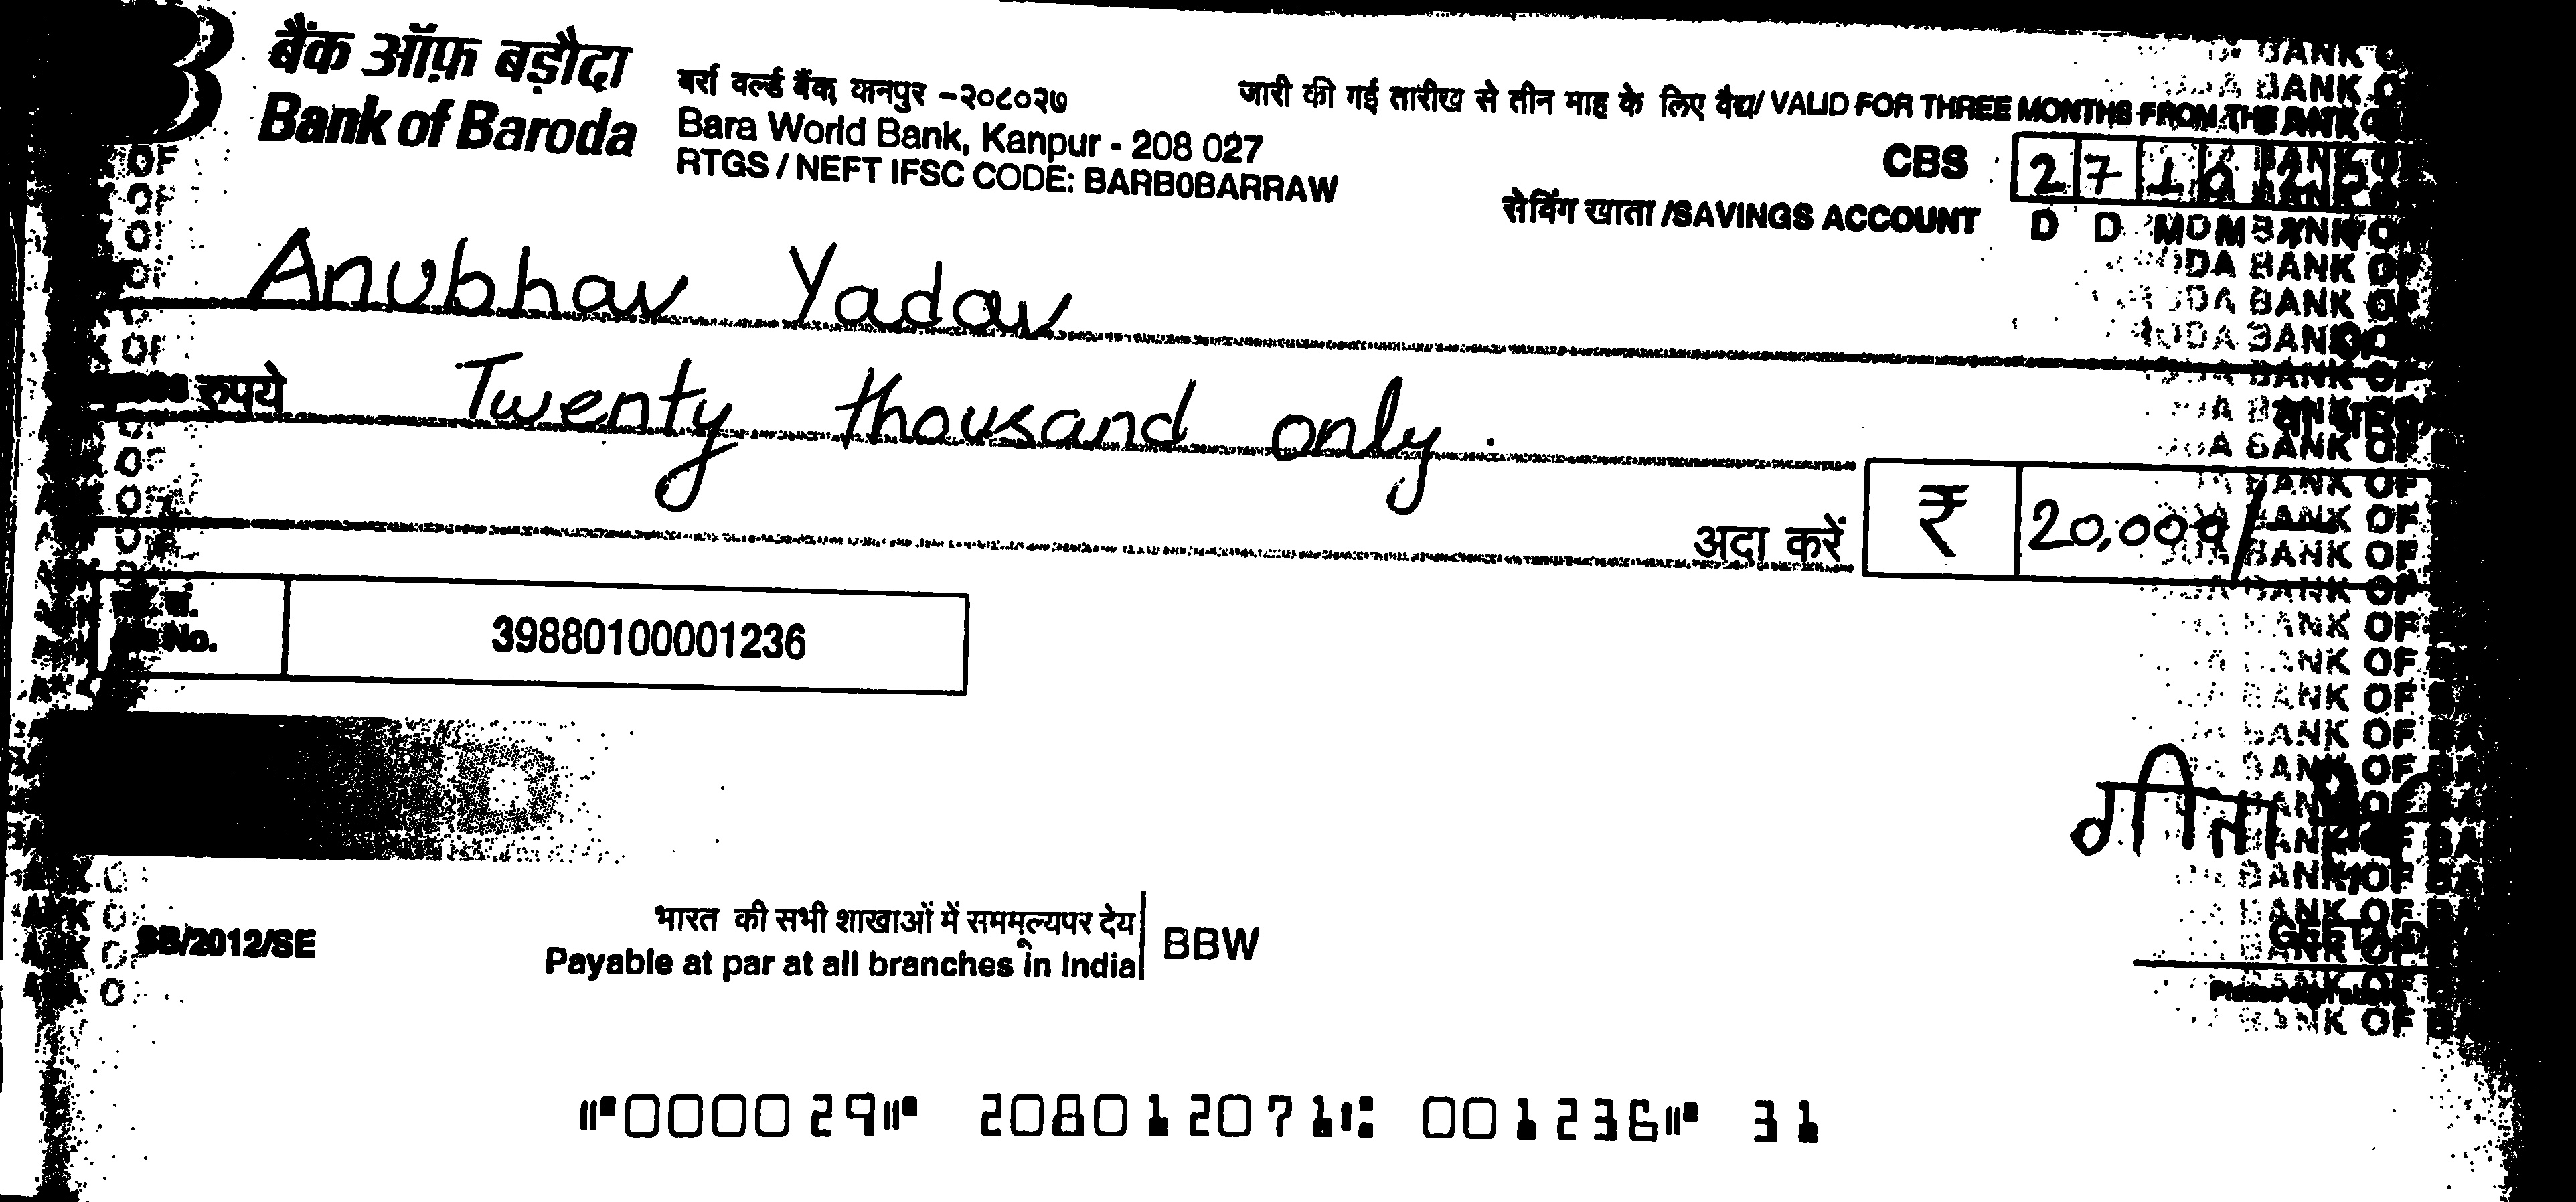 बैंक ऑफ़ बड़ौदा
Bank of Baroda
बर्रा वर्ल्ड बैंक, कानपुर -२०८०२७
Bara World Bank, Kanpur - 208 027
RTGS / NEFT IFSC CODE: BARB0BARRAW
जारी की गई तारीख से तीन माह के लिए वैद्य/ VALID FOR THREE MONTHS FROM THE
CBS 2 7 1 0 2
सेविंग खाता /SAVINGS ACCOUNT D D M M
Anubhav Yadav
रुपये Twenty thousand only.
अदा करें ₹ 20,000/-
No. 39880100001236
गीता
SB/2012/SE
भारत की सभी शाखाओं में सममूल्यपर देय
Payable at par at all branches in India BBW
GEETA
Please sign above
⑈000029⑈ 208012071⑆ 001236⑈ 31
BANK OF